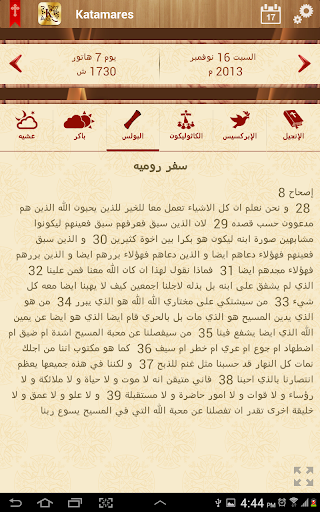 Katamares
17
السبت 16 نوفمبر
2013 م
يوم 7 هاتور
1730 ش
الإنجيل
الإبركسيس
الكاثوليكون
البولس
باكر
عشيه
سفر روميه
إصحاح 8
28 و نحن نعلم ان كل الاشياء تعمل معا للخير للذين يحبون الله الذين هم
مدعوون حسب قصده 29 لان الذين سبق فعرفهم سبق فعينهم ليكونوا
مشابهين صورة ابنه ليكون هو بكرا بين اخوة كثيرين 30 و الذين سبق
فعينهم فهؤلاء دعاهم ايضا و الذين دعاهم فهؤلاء بررهم ايضا و الذين بررهم
فهؤلاء مجدهم ايضا 31 فماذا نقول لهذا ان كان الله معنا فمن علينا 32
الذي لم يشفق على ابنه بل بذله لاجلنا اجمعين كيف لا يهبنا ايضا معه كل
شيء 33 من سيشتكي على مختاري الله الله هو الذي يبرر 34 من هو
الذي يدين المسيح هو الذي مات بل بالحري قام ايضا الذي هو ايضا عن يمين
الله الذي ايضا يشفع فينا 35 من سيفصلنا عن محبة المسيح اشدة ام ضيق ام
اضطهاد ام جوع ام عري ام خطر ام سيف 36 كما هو مكتوب اننا من اجلك
نمات كل النهار قد حسبنا مثل غنم للذبح 37 و لكننا في هذه جميعها يعظم
انتصارنا بالذي احبنا 38 فاني متيقن انه لا موت و لا حياة و لا ملائكة و لا
رؤساء و لا قوات و لا امور حاضرة و لا مستقبلة 39 و لا علو و لا عمق و لا
خليقة اخرى تقدر ان تفصلنا عن محبة الله التي في المسيح يسوع ربنا
4:44 PM